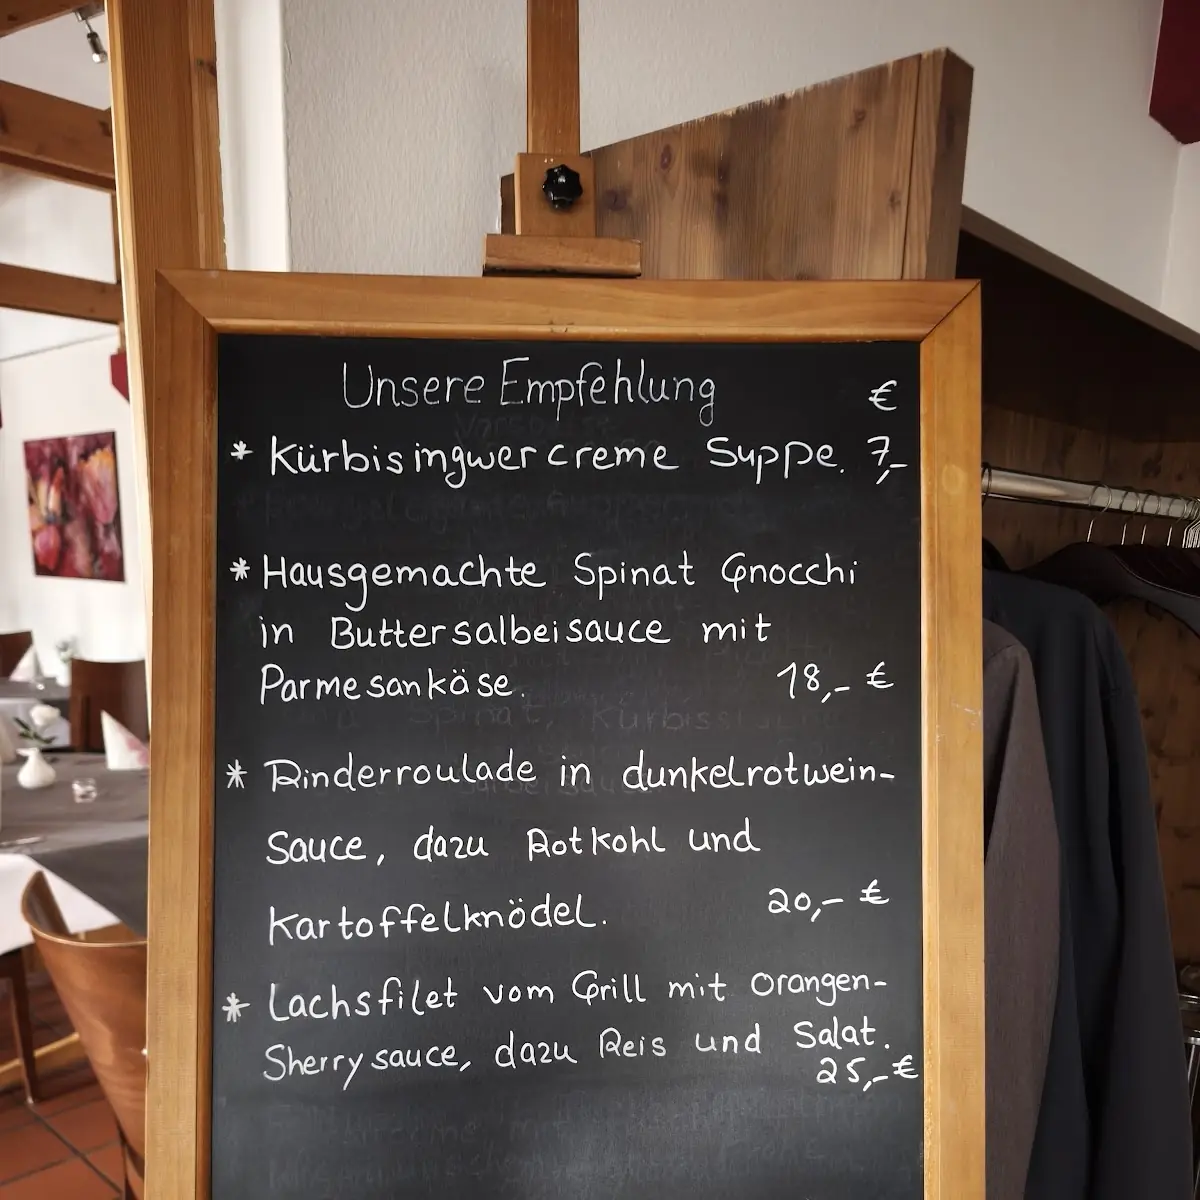 Unsere Empfehlung €
* Kürbisingwercreme Suppe. 7,-
* Hausgemachte Spinat Gnocchi
in Buttersalbeisauce mit
Parmesankäse. 18,- €
* Rinderroulade in dunkelrotwein-
Sauce, dazu Rotkohl und
Kartoffelknödel. 20,- €
* Lachsfilet vom Grill mit Orangen-
Sherrysauce, dazu Reis und Salat.
25,- €